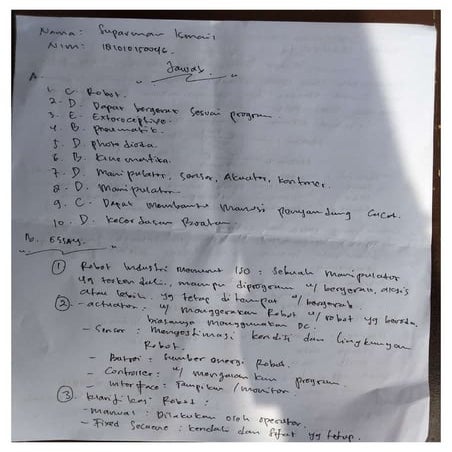 Nama : Suparman Ismail
Nim : 181010150046.
Jawab.
A.
1. C. Robot.
2. D. Dapat bergerak sesuai program.
3. E. Extoroceptive.
4. B. Pneumatik.
5. D. photodioda.
6. B. Kinematika.
7. D. Manipulator, Sensor, Akuator, kontroler.
8. D. Manipulator
9. C. Dapat membantu Manusi penyandang Cacat.
10. D. Kecerdasan Buatan.
B. ESSAY.
① Robot Industri menurut ISO : Sebuah Manipulator
yg terkendali, mampu diprogram u/ bergerak,
atau lebih. yg tetap di tempat u/ bergerak
② - actuator : u/ menggerakan Robot u/ robot yg beroda.
biasanya menggunakan DC.
- Sensor : Mengestimasi kondisi dan lingkungan
Robot.
- Batrei : Sumber energi Robot.
- Controller : u/ menjalankan program.
- Interface : Tampilan / monitor
③ klasifikasi Robot :
- manual : Dilakukan oleh operator.
- Fixed : kendali dan sifat yg tetap.